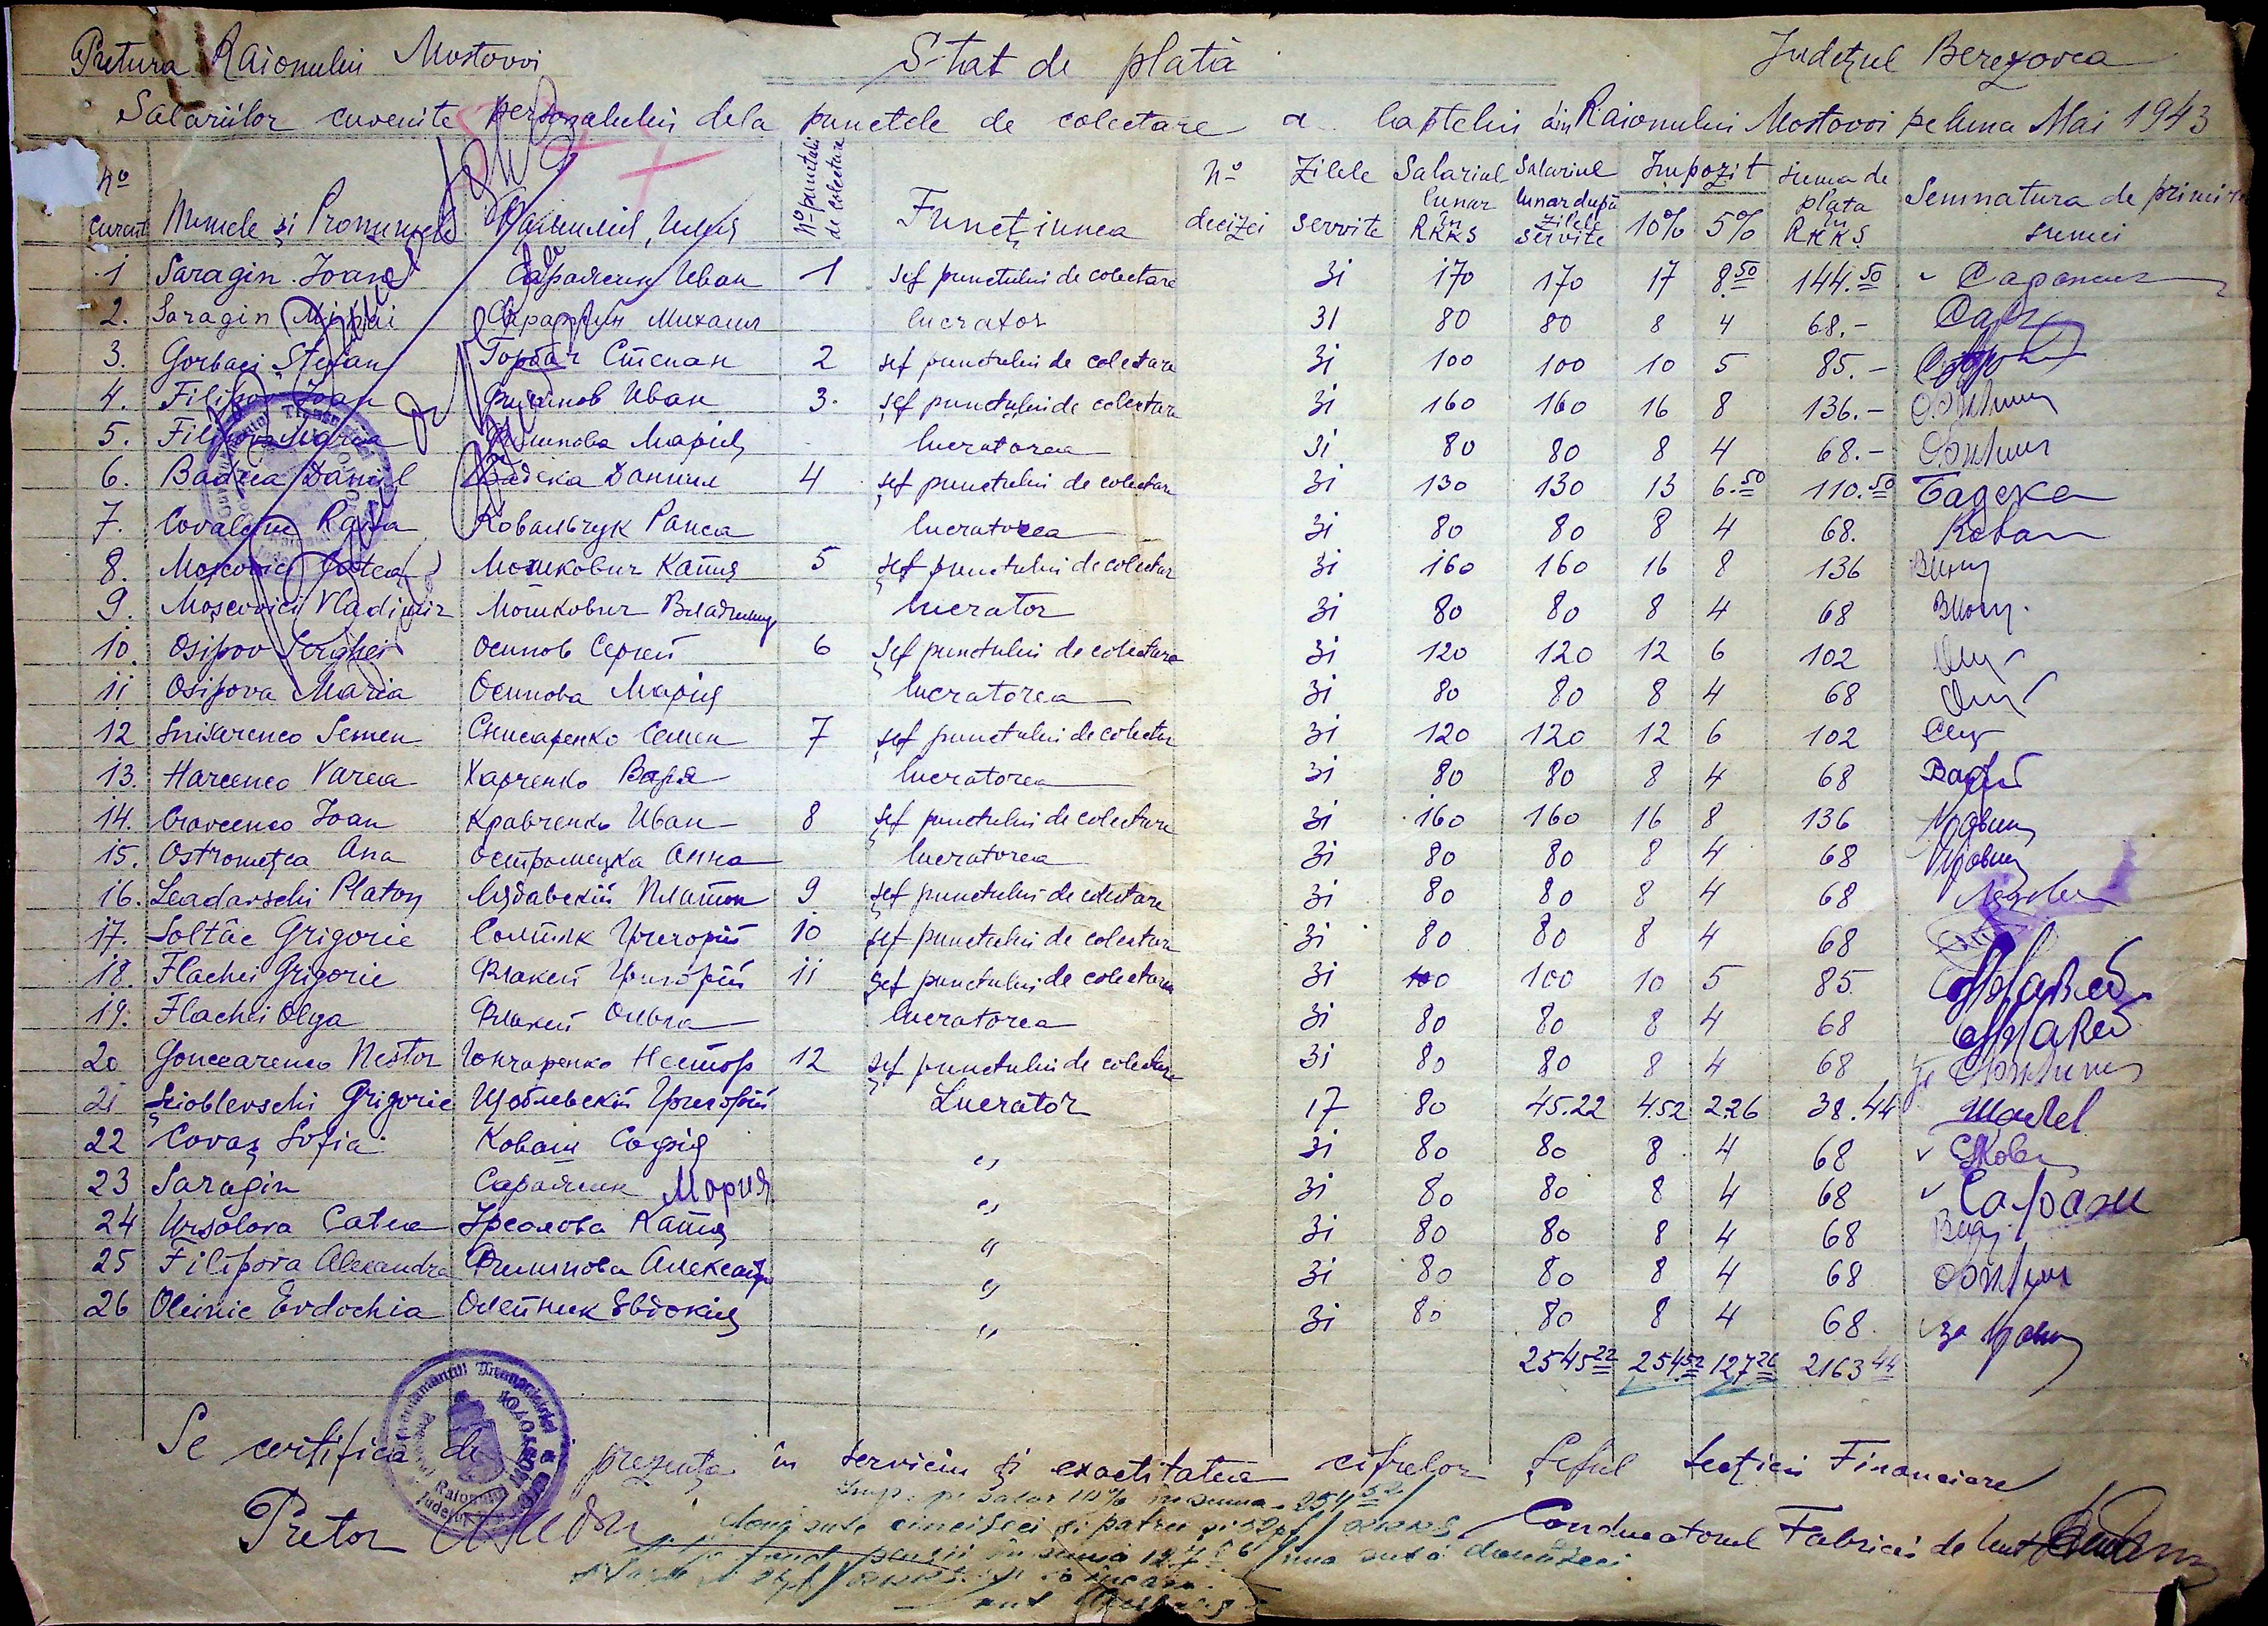 Pretura Raionului Mostovoi Stat de plată Județul Berezovca
Salariilor cuvenite personalului dela punctele de colectare a laptelui din Raionului Mostovoi pe luna Mai 1943
No curent Numele și Pronumele Фамилия, Имя No punctului de colectare Funcțiunea No deciziei Zilele servite Salariul lunar în RKKS Salariul lunar după zilele servite Impozit 10% 5% suma de plata în RKKS Semnatura de primirea sumei
1 Saragin Ioan Саражин Иван 1 șef punctului de colectare 31 170 170 17 8.50 144.50
2. Saragin Mihai Саражин Михаил lucrator 31 80 80 8 4 68.-
3. Gorbaci Ștefan Горбач Степан 2 șef punctului de colectare 31 100 100 10 5 85.-
4. Filipov Ioan Филипов Иван 3. șef punctului de colectare 31 160 160 16 8 136.-
5. Filipova Maria Филипова Марія lucratorea 31 80 80 8 4 68.-
6. Badeca Daniil Бадека Даниил 4 șef punctului de colectare 31 130 130 13 6.50 110.50 Бадека
7. Covalciuc Raisa Ковальчук Раиса lucratorea 31 80 80 8 4 68. Ковал
8. Moșcovici Catea Мошкович Катя 5 șef punctului de colectare 31 160 160 16 8 136
9. Moșcovici Vladimir Мошкович Владимир lucrator 31 80 80 8 4 68
10. Osipov Serghei Осипов Сергей 6 șef punctului de colectare 31 120 120 12 6 102
11 Osipova Maria Осипова Марія lucratorea 31 80 80 8 4 68
12 Snisarenco Semen Снисаренко Семен 7 șef punctului de colectare 31 120 120 12 6 102
13. Harcenco Varea Харченко Варя lucratorea 31 80 80 8 4 68
14. Cravcenco Ioan Кравченко Иван 8 șef punctului de colectare 31 160 160 16 8 136
15. Ostromețca Ana Остромецка Анна lucratorea 31 80 80 8 4 68
16. Leadavschi Platon Лядавскій Платон 9 șef punctului de colectare 31 80 80 8 4 68
17. Soltîc Grigorie Солтик Григорій 10 șef punctului de colectare 31 80 80 8 4 68
18. Flachei Grigorie Флакей Григорій 11 șef punctului de colectare 31 100 100 10 5 85
19. Flachei Olga Флакей Ольга lucratorea 31 80 80 8 4 68
20 Goncearenco Nestor Гончаренко Нестор 12 șef punctului de colectare 31 80 80 8 4 68
21 Șcioblevschi Grigorie Щоблевскій Григорій Lucrator 17 80 45.22 4.52 2.26 38.44
22 Covaș Sofia Коваш Софія " 31 80 80 8 4 68
23 Saragin Саражин Мария " 31 80 80 8 4 68 Саражи
24 Ursolova Catea Урсолова Катя " 31 80 80 8 4 68
25 Filipova Alexandra Филипова Александра " 31 80 80 8 4 68
26 Oleinic Evdochia Олейник Евдокия " 31 80 80 8 4 68
2545 22 254 52 127 26 2163 44
Se certifica de prezența în serviciu și exactitatea cifrelor Șeful Secției Financiare
Pretor Conducatorul Fabricei de Unt